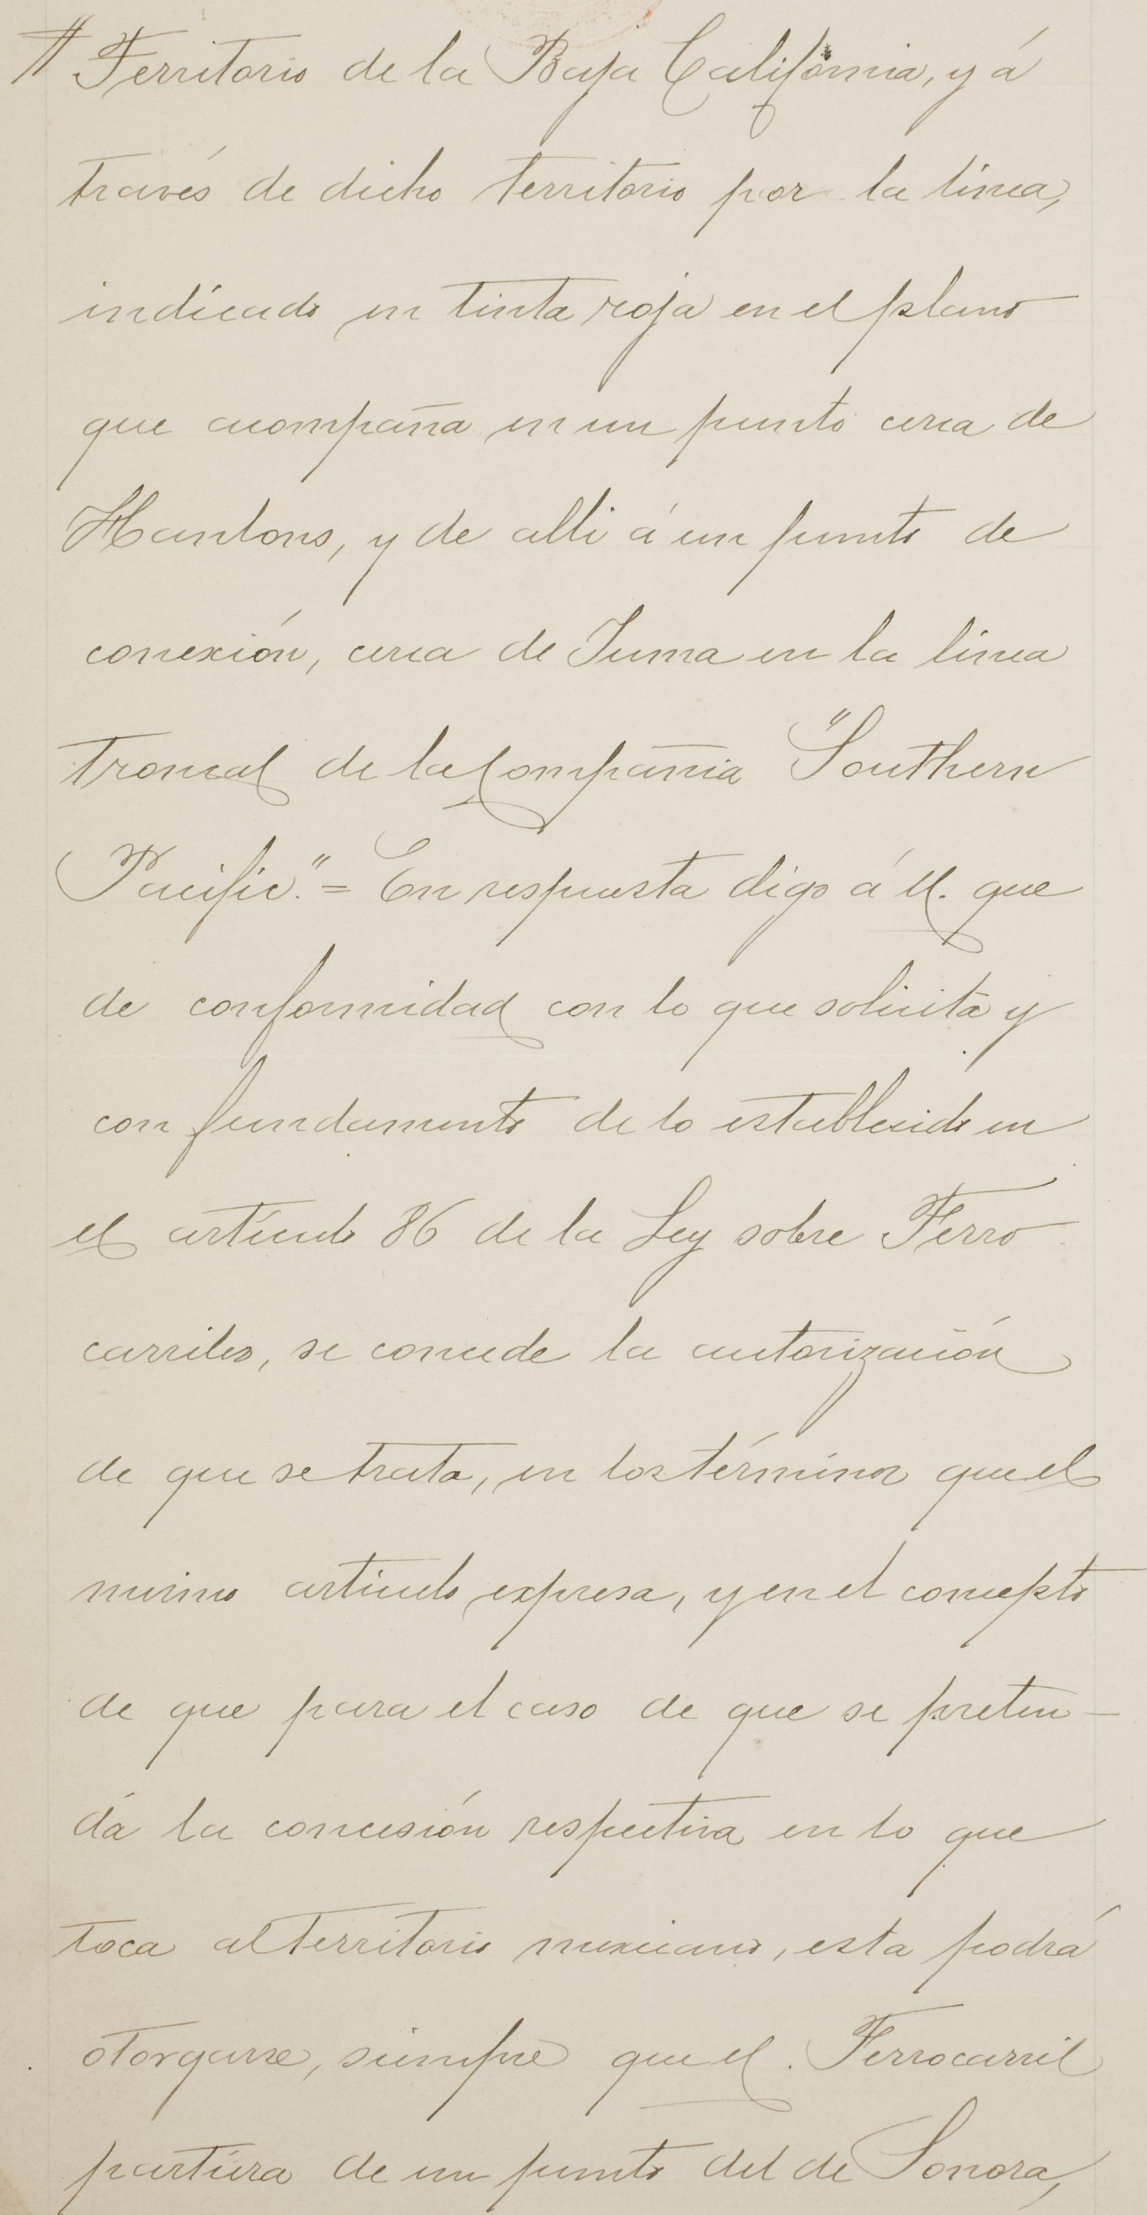 Territorio de la Baja California, y á
través de dicho territorio por la línea,
indicado en tinta roja en el plano
que acompaña en un punto cerca de
Hanlons, y de alli á un punto de
conexión, cerca de Yuma en la línea
troncal de la Compañia "Southern
Pacific." = En respuesta digo á U. que
de conformidad con lo que solicita y
con fundamento de lo establecido en
el artículo 86 de la Ley sobre Ferro
carriles, se concede la autorización
de que se trata, en los términos que el
mismo artículo expresa, y en el concepto
de que para el caso de que se preten-
da la concesión respectiva en lo que
toca al territorio mexicano, esta podrá
otorgarse, siempre que el Ferrocarril
partiera de un punto del de Sonora,